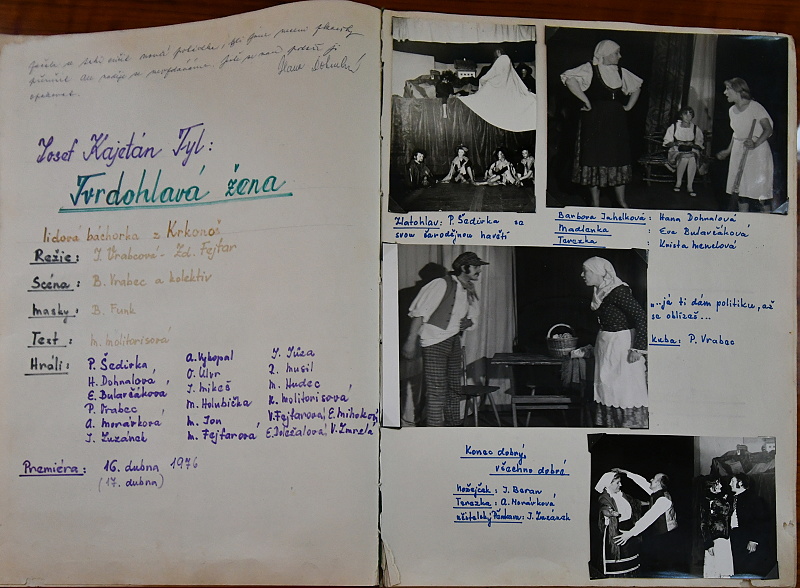 Hana Dohnalová
opakovat.
Josef Kajetán Tyl:
Tvrdohlavá žena
lidová báchorka z Krkonoš
Režie: J. Vrabcová - Zd. Fejfar
Scéna: B. Vrabec a kolektiv
Masky: B. Funk
Text: M. Molitorisová
Hráli:
P. Šedirka
H. Dohnalová
E. Bulavčáková
P. Vrabec
A. Morávková
J. Luzánek
A. Vybopal
J. Mikeš
M. Holubička
M. Jon
M. Fejfarová
J. Jůza
Z. Musil
M. Hudec
K. Molitorisová
V. Fejfarová, E. Mihoková
E. Doležalová, V. Zmrelá
Premiéra: 16. dubna 1976
(17. dubna)
Zlatohlav: P. Šedirka se
svou čarodějnou havětí
Barbora Jahelková: Hana Dohnalová
Madlenka Eva Bulavčáková
Terezka Krista Menelová
„..já ti dám politiku, až
se oblížeš...
Kuba: P. Vrabec
Konec dobrý,
všechno dobré
Nožejček: J. Beran
Terezka: A. Morávková
J. Luzánek